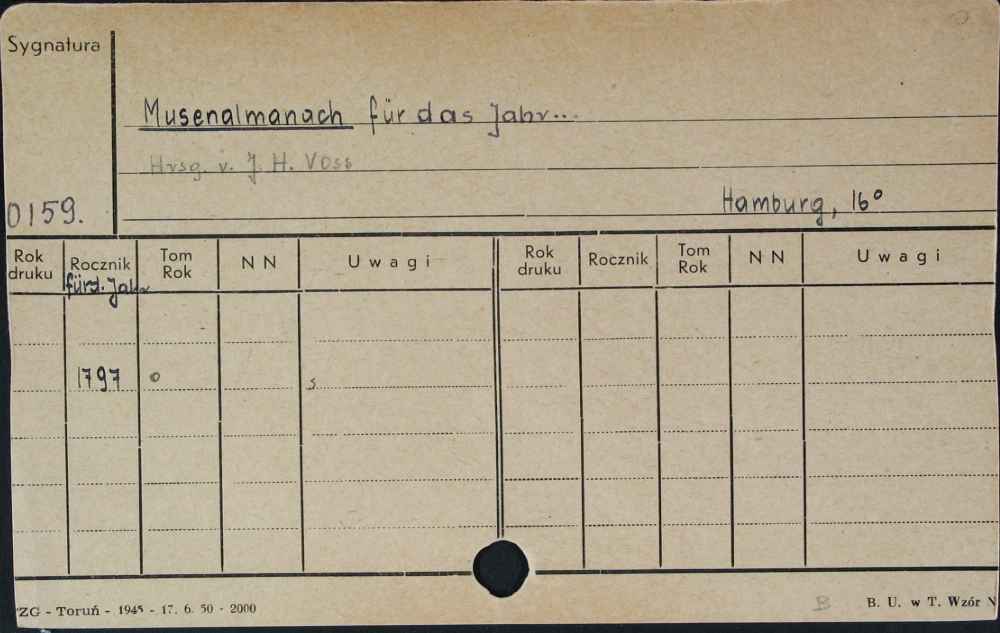 Sygnatura
Musenalmanach für das Jahr...
Hrsg. v. J. H. Voss
0159.
Hamburg, 16°
Rok druku Rocznik Tom Rok NN Uwagi Rok druku Rocznik Tom Rok NN Uwagi
für d. Jahr
1797 o s
ZG - Toruń - 1945 - 17. 6. 50 - 2000 B B. U. w T. Wzór N